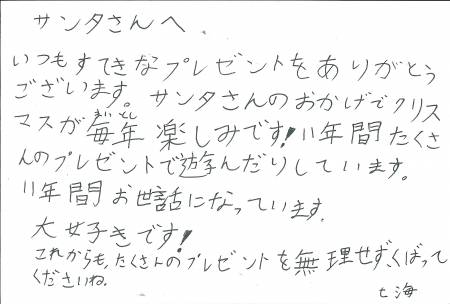 サンタさんへ
いつもすてきなプレゼントをありがとう
ございます。サンタさんのおかげでクリス
マスが毎年楽しみです!11年間たくさ
まいとし
んのプレゼントで遊んだりしています。
11年間お世話になっています。
大好きです!
これからも、たくさんのプレゼントを無理せず、くばって
くださいね。
七海